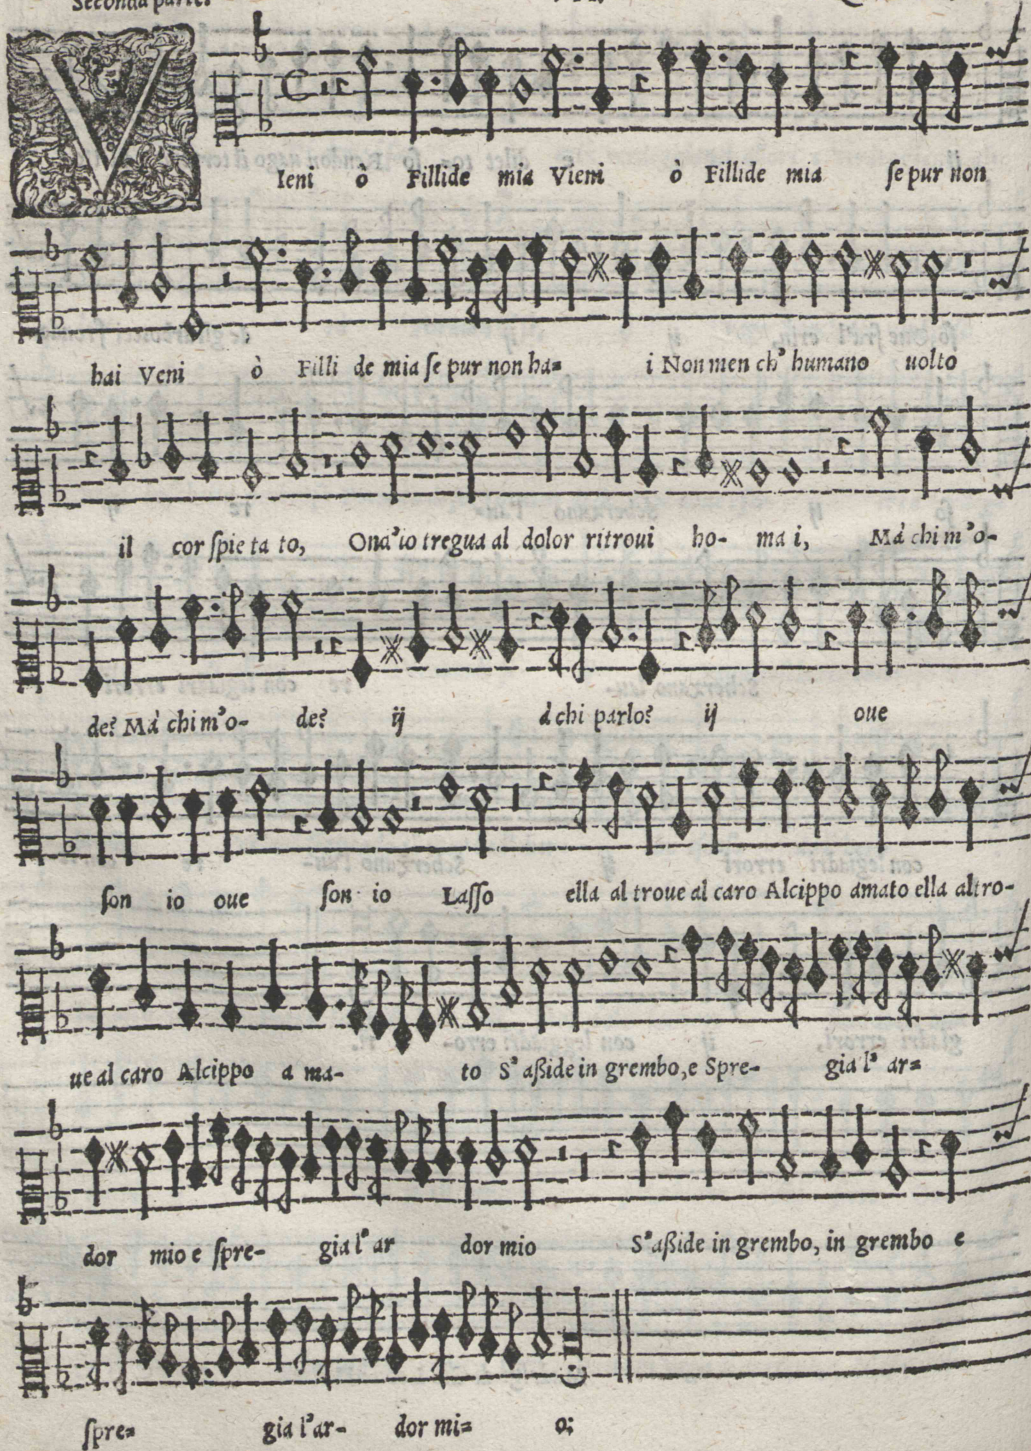 Seconda parte.
VIeni ò Fillide mia Vieni ò Fillide mia se pur non
hai Veni ò Filli de mia se pur non ha= i Non men ch' humano uolto
il cor spie ta to, Ond'io tregua al dolor ritroui ho- ma i, Mà chi m'o-
de? Mà chi m'o- de? ij à chi parlo? ij oue
son io oue son io Lasso ella al troue al caro Alcippo amato ella altro-
ue al caro Alcippo a ma- to S' aßide in grembo, e Spre- gia l' ar=
dor mio e spre- gia l' ar dor mio S'aßide in grembo, in grembo e
spre= gia l'ar- dor mi= o;